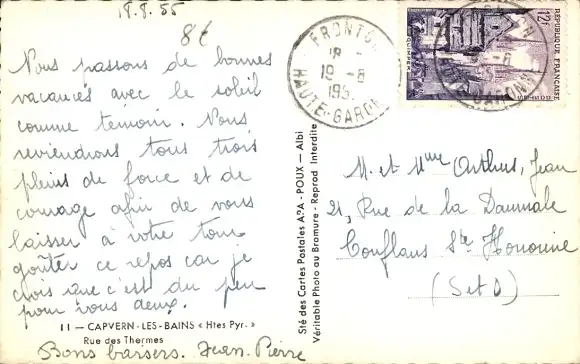 18.8.55
8t
Nous passons de bonnes
vacances avec le soleil
comme temoin. Nous
reviendrons tous trois
pleins de force et de
courage afin de vous
laisser à votre tour
goûter ce repos car je
crois que c'est du peu
pour vous deux.
11 — CAPVERN-LES-BAINS « Htes Pyr. »
Rue des Thermes
Bons baisers. Jean-Pierre
Sté des Cartes Postales APA - POUX — Albi
Véritable Photo au Bromure - Reprod Interdite
FRONTON
18 -
19 - 8
195
HAUTE-GARONNE
12F
RÉPUBLIQUE FRANÇAISE
QUIMPER
M. et Mme Arthus, Jean
21, Rue de la Dammale
Conflans Ste Honorine
(S et O)